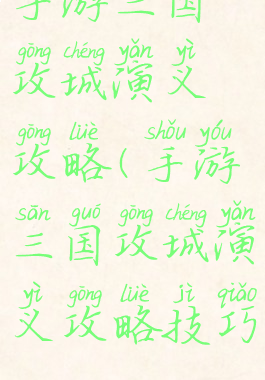 手游三国
gōng chéng yǎn yì
攻城演义
gōng lüè shǒu yóu
攻略(手游
sān guó gōng chéng yǎn
三国攻城演
yì gōng lüè jì qiǎo
义攻略技巧